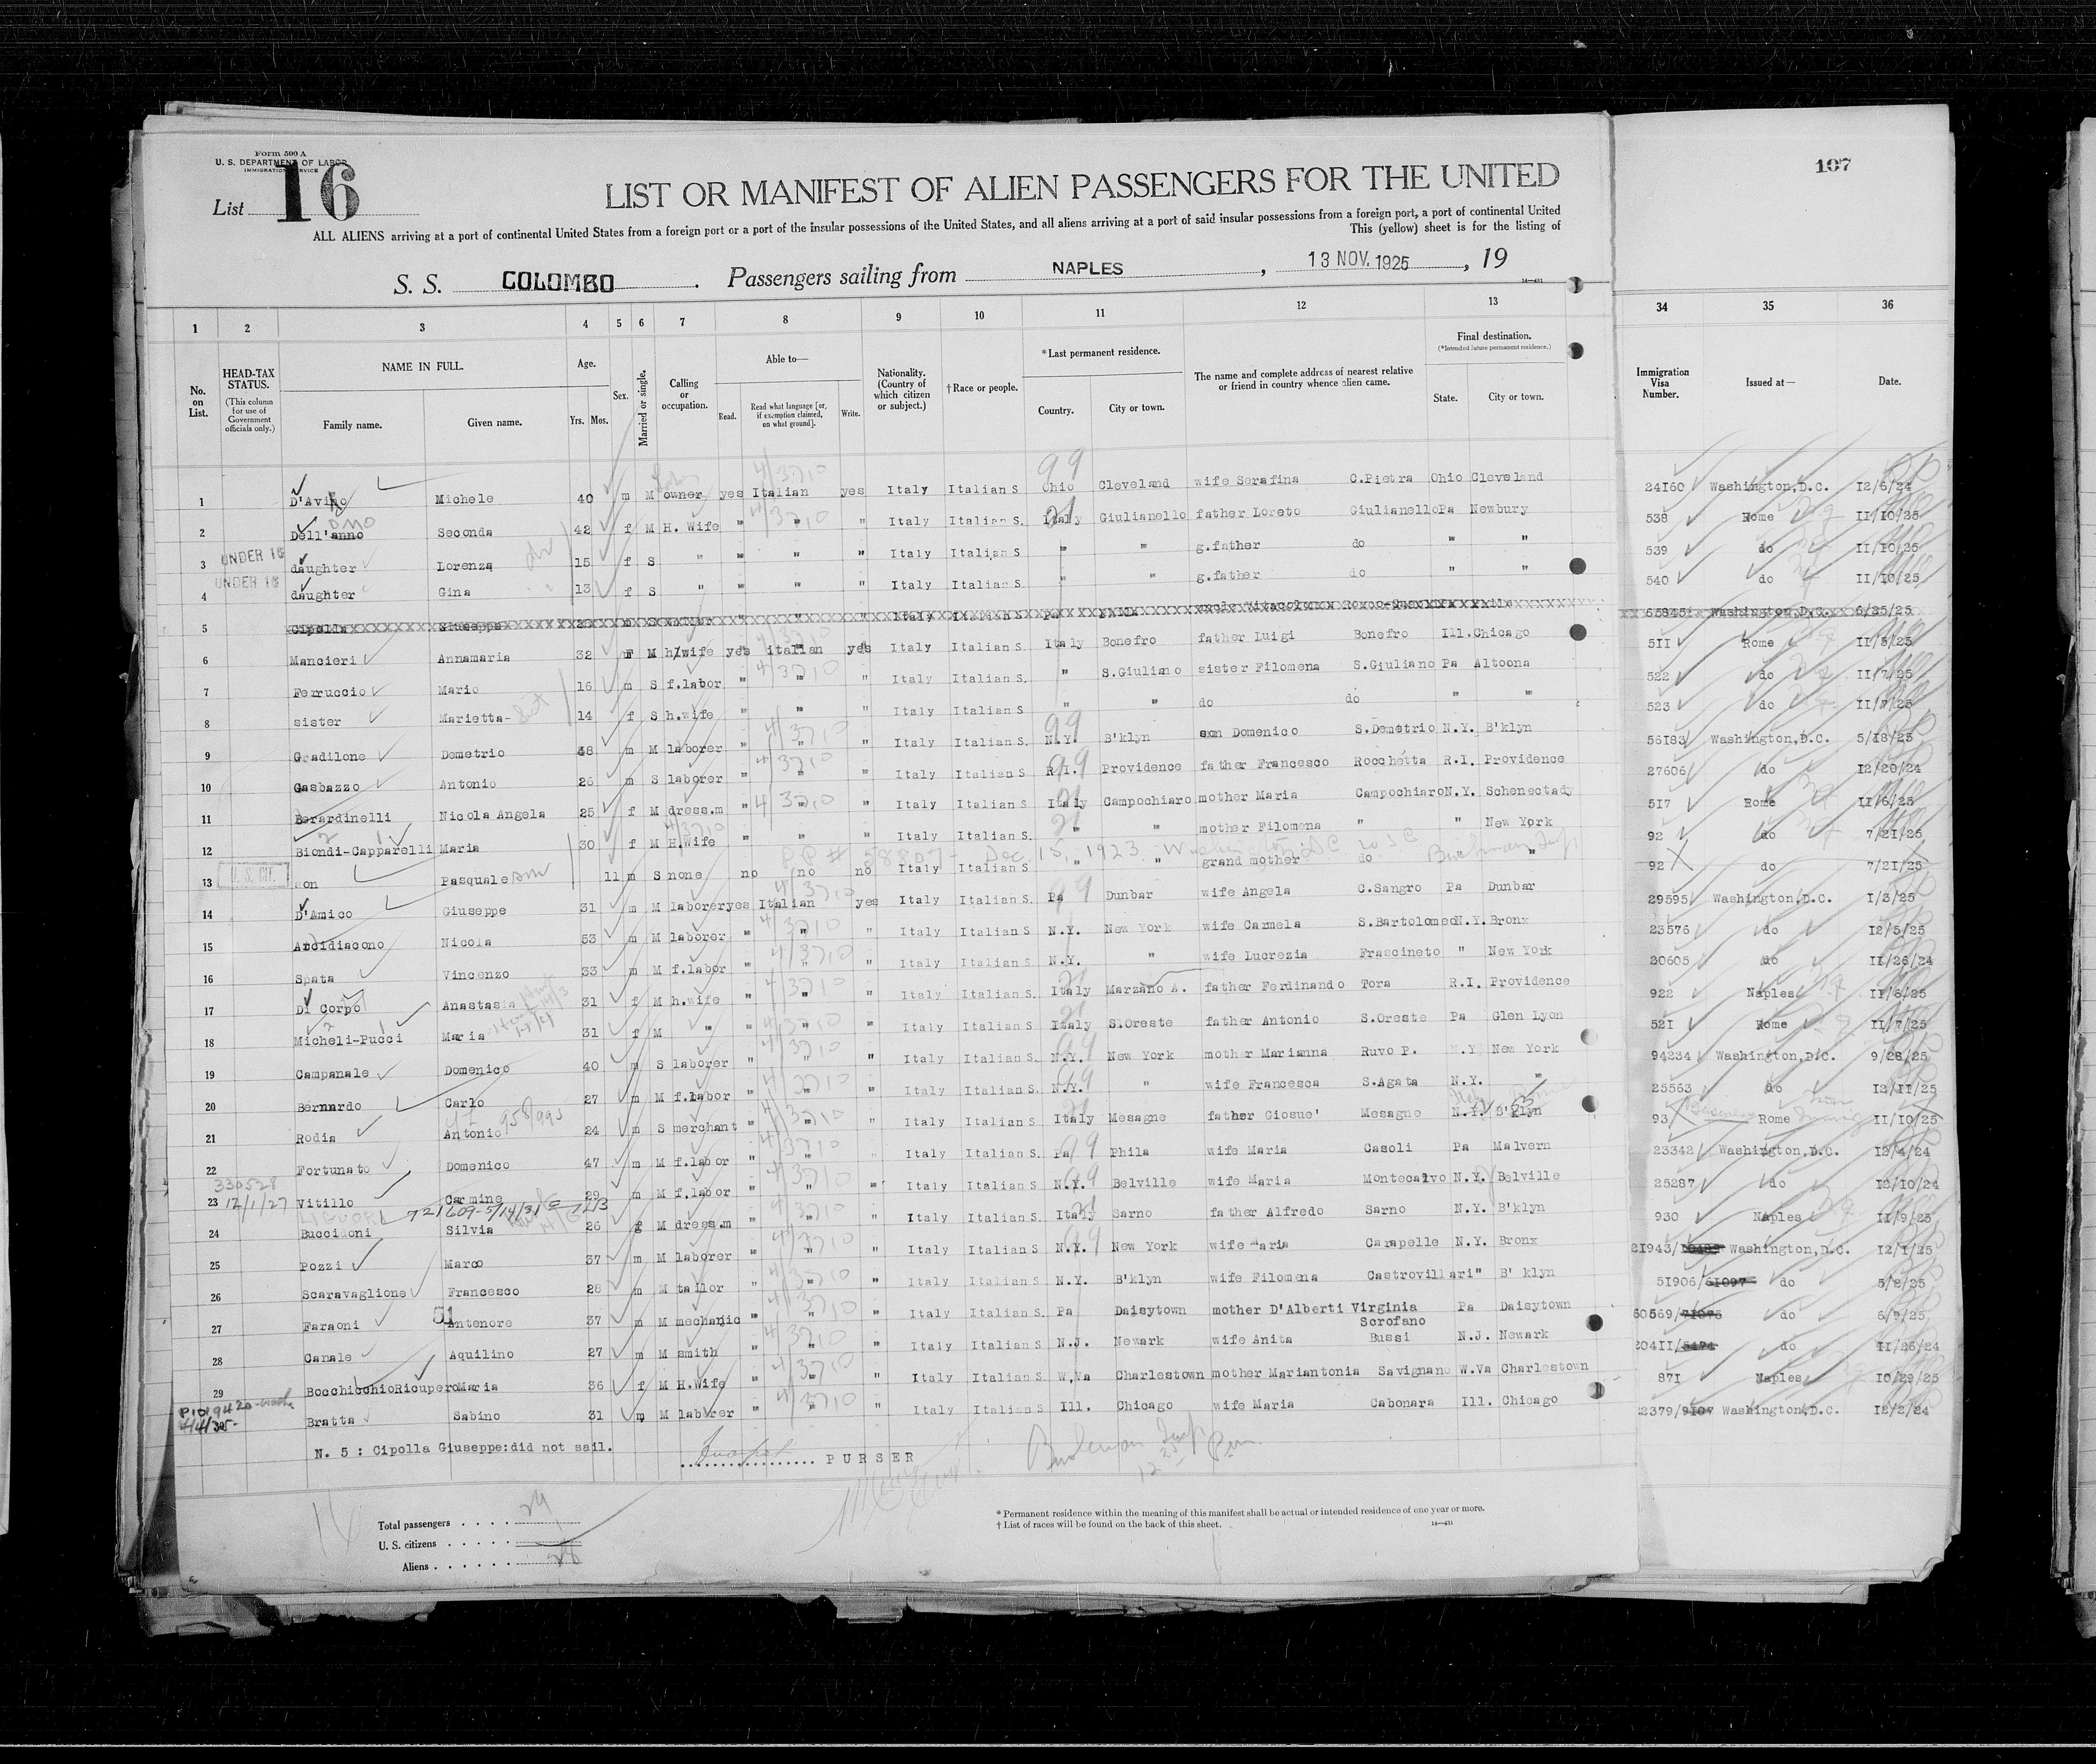 Form 500 A
U. S. DEPARTMENT OF LABOR
IMMIGRATION SERVICE
107
List 16
LIST OR MANIFEST OF ALIEN PASSENGERS FOR THE UNITED
ALL ALIENS arriving at a port of continental United States from a foreign port or a port of the insular possessions of the United States, and all aliens arriving at a port of said insular possessions from a foreign port, a port of continental United
This (yellow) sheet is for the listing of
S. S. COLOMBO. Passengers sailing from NAPLES, 13 NOV. 1925, 19
14—431
1 2 3 4 5 6 7 8 9 10 11 12 13 34 35 36
No. on List. HEAD-TAX STATUS. (This column for use of Government officials only.) NAME IN FULL. Family name. Given name. Age. Yrs. Mos. Sex. Married or single. Calling or occupation. Able to— Read. Read what language [or, if exemption claimed, on what ground]. Write. Nationality. (Country of which citizen or subject.) †Race or people. *Last permanent residence. Country. City or town. The name and complete address of nearest relative or friend in country whence alien came. Final destination. (*Intended future permanent residence.) State. City or town. Immigration Visa Number. Issued at— Date.
1 D'Avino Michele 40 m M owner yes Italian yes Italy Italian S Ohio Cleveland wife Serafina C.Pietra Ohio Cleveland 24160 Washington,D.C. 12/6/24
2 Dell'anno Seconda 42 f M H. Wife " " " Italy Italian S. Italy Giulianello father Loreto Giulianello Pa Newbury 538 Rome 11/10/25
3 UNDER 16 daughter Lorenza 15 f S " " " " Italy Italian S " " g.father do " " 539 do 11/10/25
4 UNDER 16 daughter Gina 13 f S " " " " Italy Italian S. " " g.father do " " 540 do 11/10/25
5 Cipolla Giuseppe Italy Italian S Pa Washington,D.C. 6/25/25
6 Mancieri Annamaria 32 F M h/wife yes italian yes Italy Italian S. Italy Bonefro father Luigi Bonefro Ill. Chicago 511 Rome 11/5/25
7 Ferruccio Mario 16 m S f.labor " " " Italy Italian S. " S.Giuliano sister Filomena S.Giuliano Pa Altoona 522 do 11/7/25
8 sister Marietta- 14 f S h.wife " " " Italy Italian S " " do do " " 523 do 11/7/25
9 Gradilone Demetrio 48 m M laborer " " " Italy Italian S. N.Y. B'klyn son Domenico S.Demetrio N.Y. B'klyn 56183 Washington,D.C. 5/18/25
10 Gasbazzo Antonio 26 m S laborer " " " Italy Italian S R.I. Providence father Francesco Rocchetta R.I. Providence 27606 do 12/20/24
11 Berardinelli Nicola Angela 25 f M dress.m " " " Italy Italian S Italy Campochiaro mother Maria Campochiaro N.Y. Schenectady 517 Rome 11/6/25
12 Biondi-Capparelli Maria 30 f M H.Wife " " " Italy Italian S. " " mother Filomena " " New York 92 do 7/21/25
13 U. S. CIT. son Pasquale 11 m S none no no no Italy Italian S " " grand mother do " 92 do 7/21/25
14 D'Amico Giuseppe 31 m M laborer yes Italian yes Italy Italian S. Pa Dunbar wife Angela C.Sangro Pa Dunbar 29595 Washington,D.C. 1/3/25
15 Arcidiacono Nicola 53 m M laborer " " " Italy Italian S. N.Y. New York wife Carmela S.Bartolomeo N.Y. Bronx 23576 do 12/5/25
16 Spata Vincenzo 33 m M f.labor " " " Italy Italian S N.Y. " wife Lucrezia Frascineto " New York 20605 do 11/26/24
17 Di Corpo Anastasia 31 f M h.wife " " " Italy Italian S. Italy Marzano A. father Ferdinando Tora R.I. Providence 922 Naples 11/6/25
18 Micheli-Pucci Maria 31 f M " " " " Italy Italian S. Italy S.Oreste father Antonio S.Oreste Pa Glen Lyon 521 Rome 11/7/25
19 Campanale Domenico 40 m S laborer " " " Italy Italian S. N.Y. New York mother Marianna Ruvo P. N.Y New York 94234 Washington,D.C. 9/28/25
20 Bernardo Carlo 27 m M f.labor " " " Italy Italian S. N.Y. " wife Francesca S.Agata N.Y. " 25563 do 12/11/25
21 Rodia Antonio 24 m S merchant " " " Italy Italian S. Italy Mesagne father Giosue' Mesagne N.Y. B'klyn 93 Rome 11/10/25
22 Fortunato Domenico 47 m M f.labor " " " Italy Italian S. Pa Phila wife Maria Casoli Pa Malvern 23342 Washington,D.C. 12/4/24
330528
23 12/1/27 Vitillo Carmine 29 m M f.labor " " " Italy Italian S. N.Y. Belville wife Maria Montecalvo N.Y. Belville 25287 do 12/10/24
24 Buccidoni Silvia 26 f M dress.m " " " Italy Italian S. Italy Sarno father Alfredo Sarno N.Y. B'klyn 930 Naples 11/9/25
25 Pozzi Marco 37 m M laborer " " " Italy Italian S N.Y. New York wife Maria Carapelle N.Y. Bronx 21943/ Washington,D.C. 12/1/25
26 Scaravaglione Francesco 28 m M tailor " " " Italy Italian S. N.Y. B'klyn wife Filomena Castrovillari " B' klyn 51906/61097 do 5/2/25
27 Faraoni Antenore 37 m M mechanic " " " Italy Italian S. Pa Daisytown mother D'Alberti Virginia Scrofano Pa Daisytown 60569/71075 do 6/9/25
28 Canale Aquilino 27 m M smith " " " Italy Italian S. N.J. Newark wife Anita Bussi N.J. Newark 20411/5474 do 11/26/24
29 BocchicchioRicupero Maria 36 f M H.Wife " " " Italy Italian S W,Va Charlestown mother Mariantonia Savignano W.Va Charlestown 871 Naples 10/29/25
Bratta Sabino 31 m M laborer " " " Italy Italian S Ill. Chicago wife Maria Cabonara Ill. Chicago 22379/9107 Washington,D.C. 12/2/24
N. 5 : Cipolla Giuseppe:did not sail.
PURSER
Total passengers 29
U. S. citizens 1
Aliens 28
*Permanent residence within the meaning of this manifest shall be actual or intended residence of one year or more.
†List of races will be found on the back of this sheet.
14—431